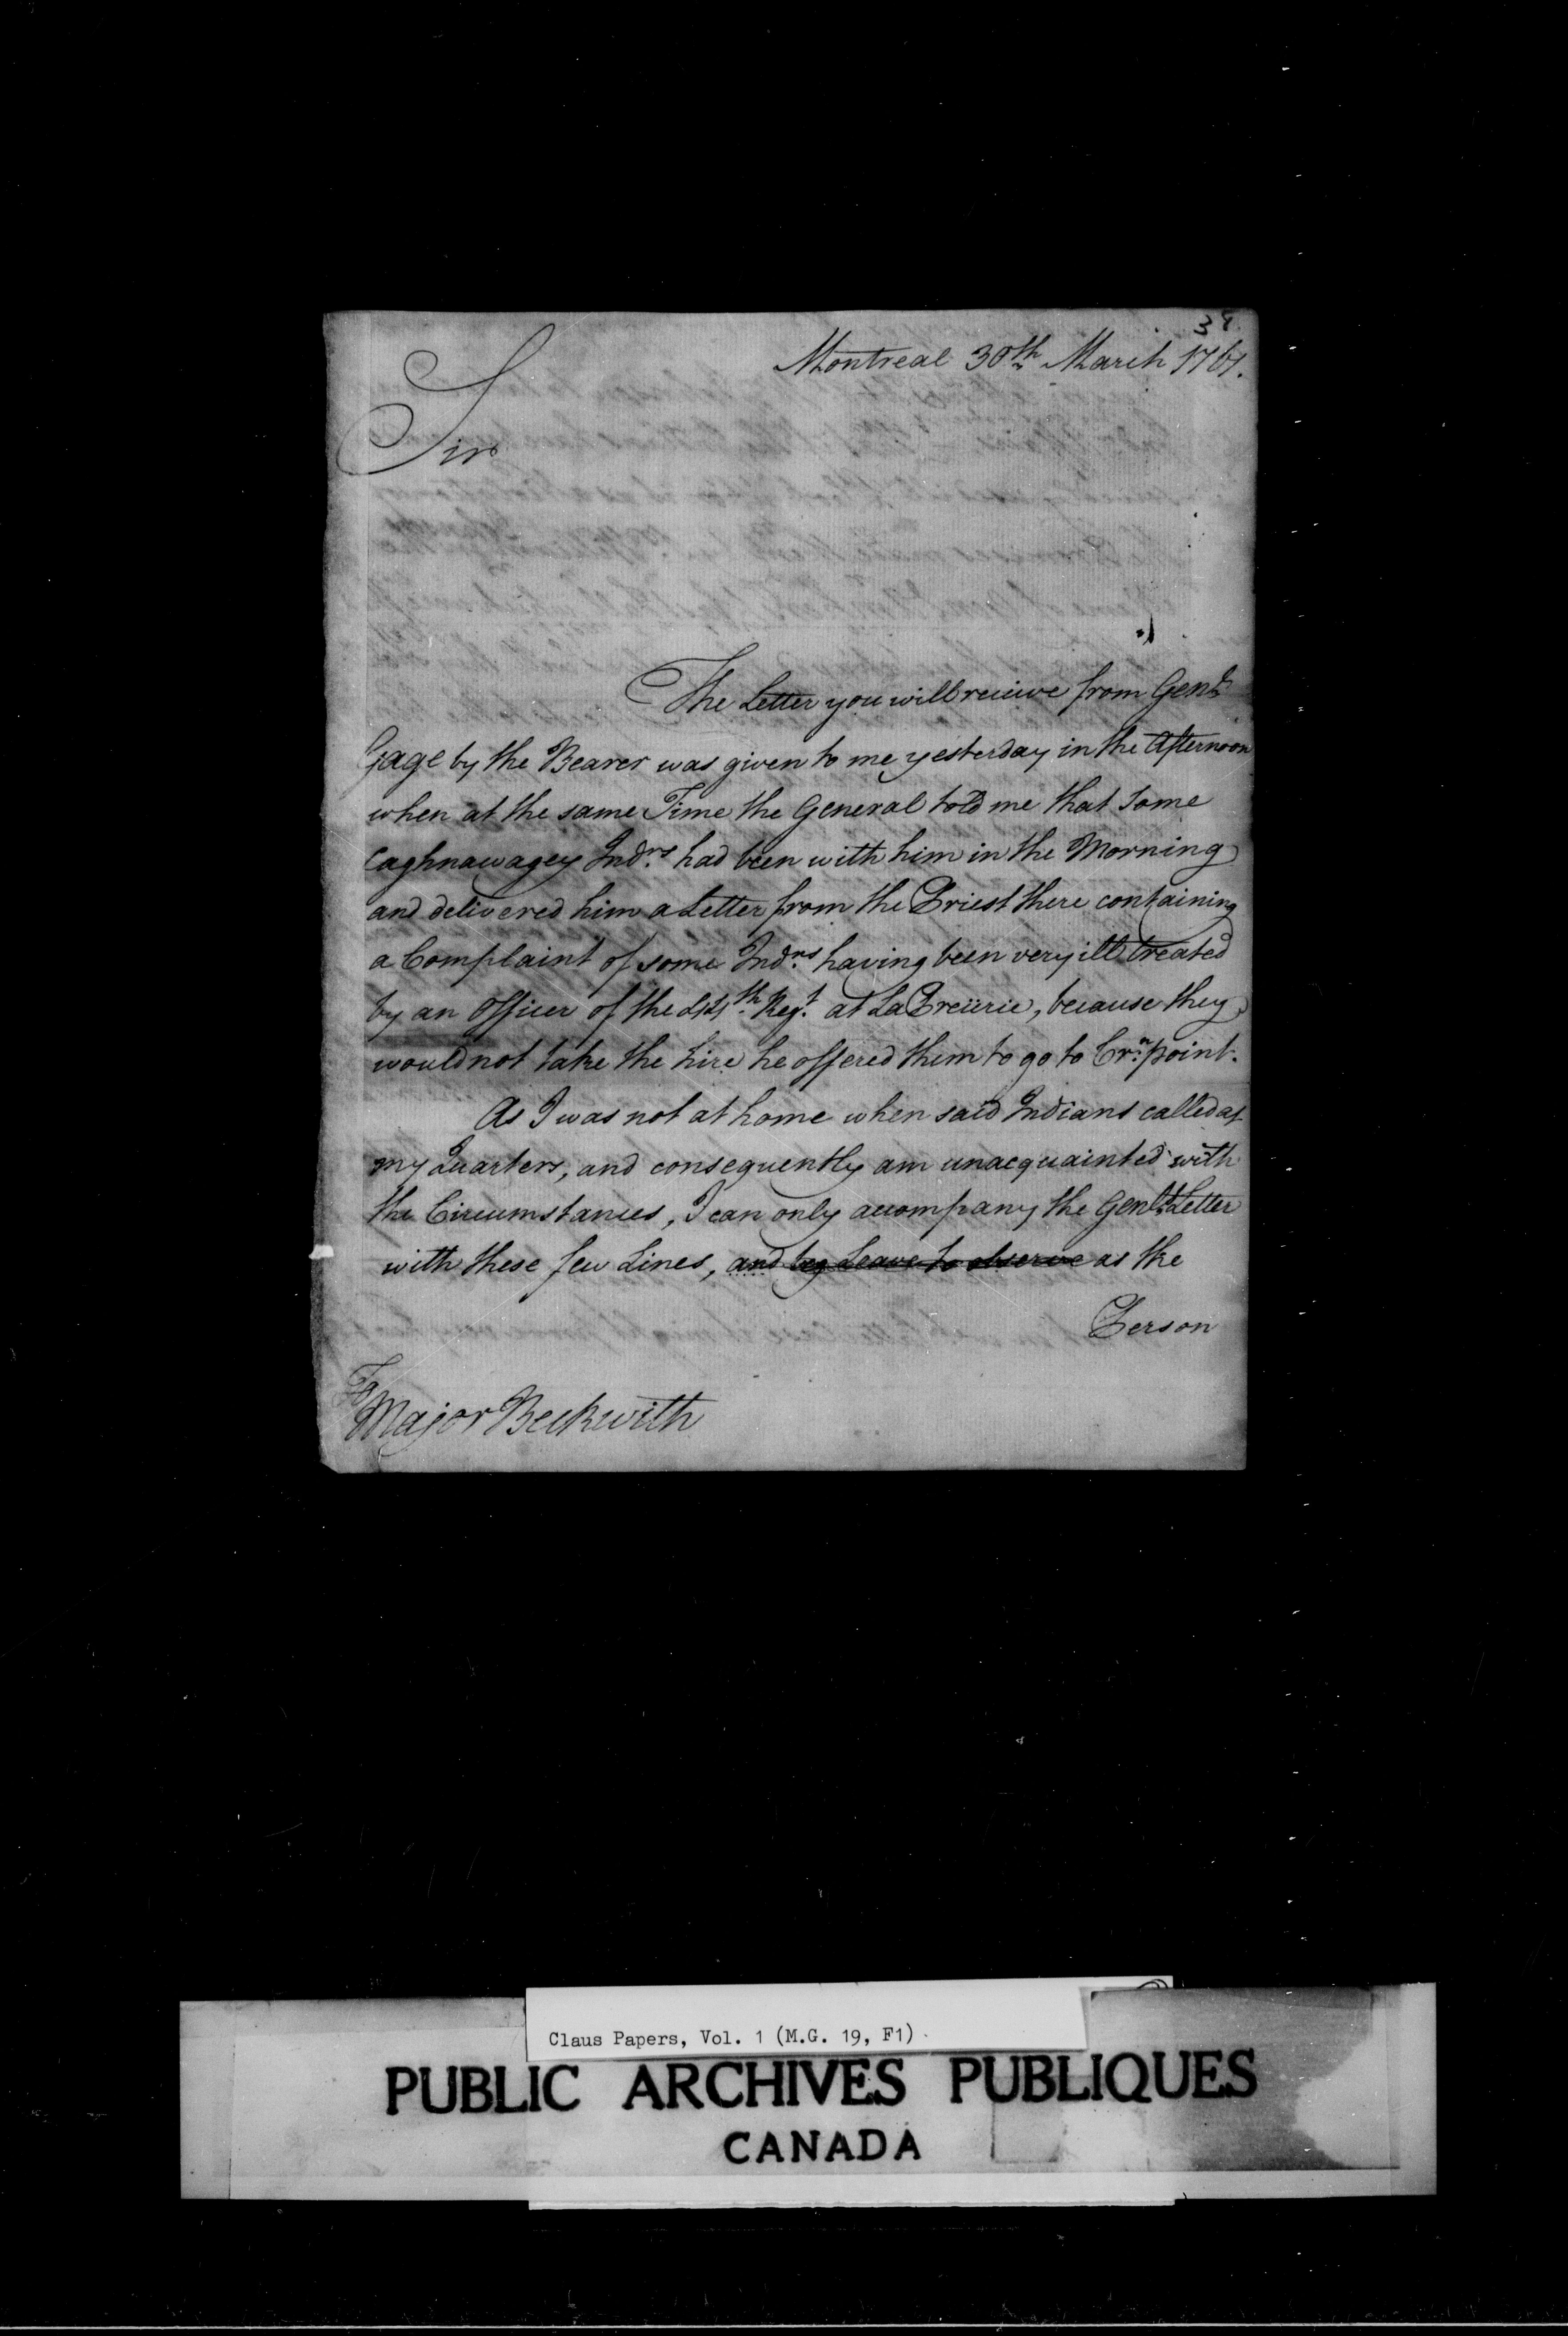 34
Montreal 30th March 1761.
Sir
The Letter you will receive from Genl.
Gage by the Bearer was given to me yesterday in the Afternoon
when at the same Time the General told me that some
Caghnawagey Indns. had been with him in the Morning
and delivered him a Letter from the Priest there containing
a Complaint of some Indns. having been very ill treated
by an Officer of the 44th. Regt. at La Preirie, because they
would not take the hire he offered them to go to Crn. point.
As I was not at home when said Indians called at
my Quarters, and consequently am unacquainted with
the Circumstances, I can only accompany the Genls. Letter
with these few Lines, and beg Leave to observe as the
Person
To
Major Beckwith
Claus Papers, Vol. 1 (M.G. 19, F1)
PUBLIC ARCHIVES PUBLIQUES
CANADA